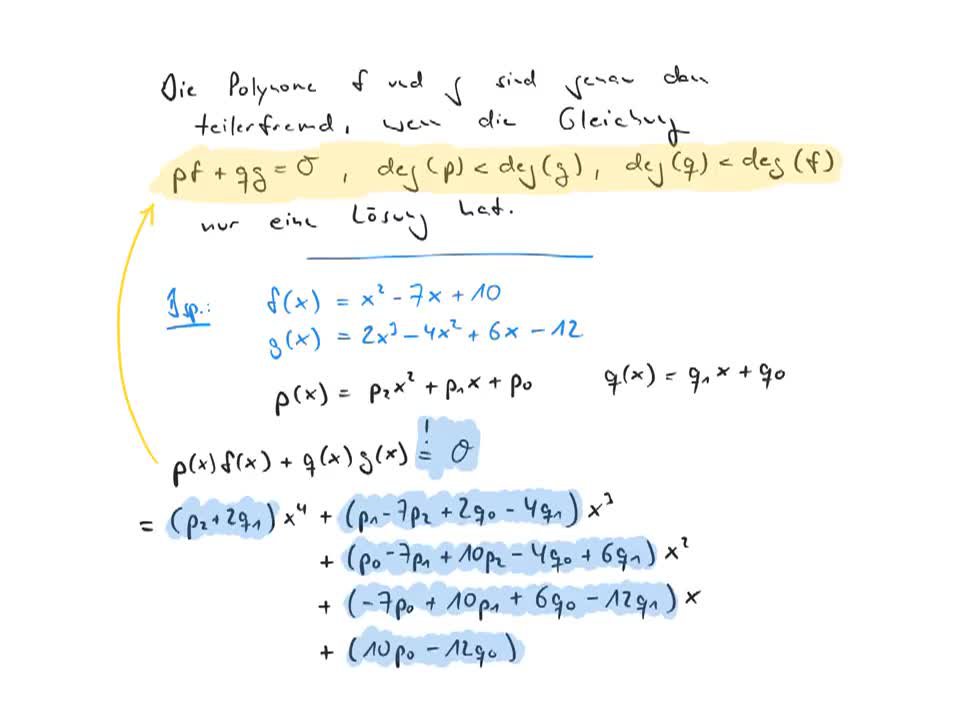 Die Polynome f und g sind genau dann
teilerfremd, wenn die Gleichung
pf + qg = 0, deg(p) < deg(g), deg(q) < deg(f)
nur eine Lösung hat.
Bsp.: f(x) = x² - 7x + 10
g(x) = 2x³ - 4x² + 6x - 12
p(x) = p₂x² + p₁x + p₀ q(x) = q₁x + q₀
!
p(x)f(x) + q(x)g(x) = 0
= (p₂ + 2q₁)x⁴ + (p₁ - 7p₂ + 2q₀ - 4q₁)x³
+ (p₀ - 7p₁ + 10p₂ - 4q₀ + 6q₁)x²
+ (-7p₀ + 10p₁ + 6q₀ - 12q₁)x
+ (10p₀ - 12q₀)